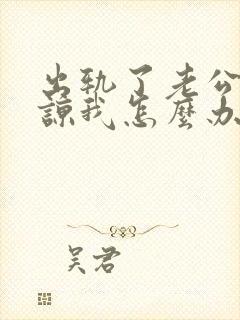 出轨了老公
谅我怎麼办
吴君